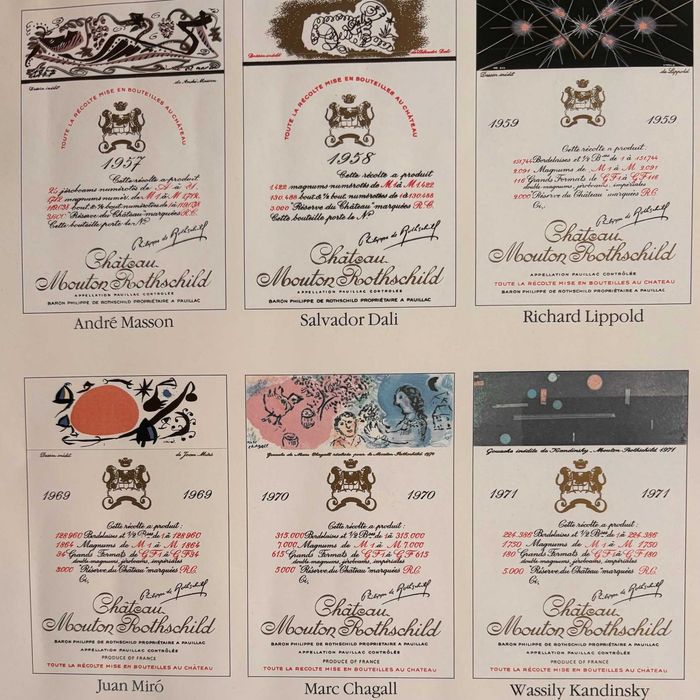 Dessin inédit
de André Masson
TOUTE LA RÉCOLTE MISE EN BOUTEILLES AU CHÂTEAU
1957
Cette récolte a produit
25 jéroboams numérotés de A à Y.
magnums numér. de M 1 à M
bout. & ½ bout. numérotées de 1 à
2.000 "Réserve du Château" marquées R.C.
Cette bouteille porte le Nº
Philippe de Rothschild
Château
Mouton Rothschild
APPELLATION PAUILLAC CONTRÔLÉE
BARON PHILIPPE DE ROTHSCHILD PROPRIÉTAIRE A PAUILLAC
André Masson
Dessin inédit
de Salvador Dali
TOUTE LA RÉCOLTE MISE EN BOUTEILLES AU CHÂTEAU
1958
Cette récolte a produit
1.422 magnums numérotés de M 1 à M 1.422
130.488 bout. & ½ bout. numérotées de 1 à 130.488
3.000 "Réserve du Château" marquées R.C.
Cette bouteille porte le Nº
Philippe de Rothschild
Château
Mouton Rothschild
APPELLATION PAUILLAC CONTRÔLÉE
BARON PHILIPPE DE ROTHSCHILD PROPRIÉTAIRE A PAUILLAC
Salvador Dali
Dessin inédit
de Lippold
1959 1959
Cette récolte a produit
151.744 Bordelaises et ½ Bses de 1 à 151.744
2.091 Magnums de M 1 à M 2.091
116 Grands Formats de G F 1 à G F 116
double magnums, jéroboams, impériales
2.000 "Réserve du Château" marquées R.C.
Ci,
Philippe de Rothschild
Château
Mouton Rothschild
APPELLATION PAUILLAC CONTRÔLÉE
TOUTE LA RÉCOLTE MISE EN BOUTEILLES AU CHÂTEAU
BARON PHILIPPE DE ROTHSCHILD PROPRIÉTAIRE A PAUILLAC
Richard Lippold
Dessin inédit
de Joan Miró
1969 1969
Cette récolte a produit:
128.960 Bordelaises et ½ Bses de 1 à 128.960
1864 Magnums de M 1 à M 1864
94 Grands Formats de G F 1 à G F 94
double magnums, jéroboams, impériales
3000 "Réserve du Château" marquées R.C.
Ci,
Philippe de Rothschild
Château
Mouton Rothschild
BARON PHILIPPE DE ROTHSCHILD PROPRIÉTAIRE A PAUILLAC
APPELLATION PAUILLAC CONTRÔLÉE
PRODUCE OF FRANCE
TOUTE LA RÉCOLTE MISE EN BOUTEILLES AU CHÂTEAU
Juan Miró
Gouache de Marc Chagall réalisée pour le Mouton Rothschild 1970
1970 1970
Cette récolte a produit:
315.000 Bordelaises et ½ Bses de 1 à 315.000
7.000 Magnums de M 1 à M 7.000
615 Grands Formats de G F 1 à G F 615
double magnums, jéroboams, impériales
5.000 "Réserve du Château" marquées R.C.
Ci,
Philippe de Rothschild
Château
Mouton Rothschild
BARON PHILIPPE DE ROTHSCHILD PROPRIÉTAIRE A PAUILLAC
APPELLATION PAUILLAC CONTRÔLÉE
PRODUCE OF FRANCE
TOUTE LA RÉCOLTE MISE EN BOUTEILLES AU CHÂTEAU
Marc Chagall
Gouache inédite de Kandinsky - Mouton Rothschild 1971
1971 1971
Cette récolte a produit:
224.386 Bordelaises et ½ Bses de 1 à 224.386
1.750 Magnums de M 1 à M 1.750
180 Grands Formats de G F 1 à G F 180
double magnums, jéroboams, impériales
5.000 "Réserve du Château" marquées R.C.
Ci,
Philippe de Rothschild
Château
Mouton Rothschild
BARON PHILIPPE DE ROTHSCHILD PROPRIÉTAIRE A PAUILLAC
APPELLATION PAUILLAC CONTRÔLÉE
PRODUCE OF FRANCE
TOUTE LA RÉCOLTE MISE EN BOUTEILLES AU CHÂTEAU
Wassily Kandinsky